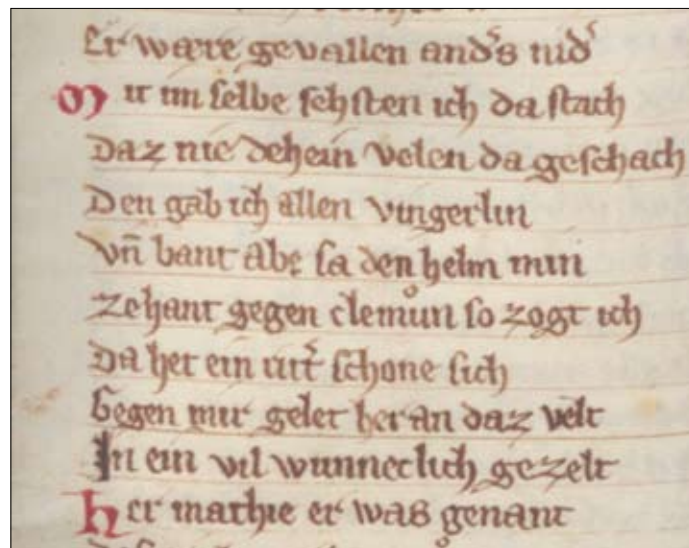 Er wære gevallen anders nider
Mit im ſelbe ſehſten ich da ſtach
Daz nie dehein velen da geſchach
Den gab ich allen vingerlin
Vn̄ bant abe ſa den helm min
Zehant gegen clemuͦn ſo zogt ich
Da het ein rit͛ ſchone ſich
Gegen mir gelet her an daz velt
In ein vil wunneclich gezelt
Her mathie er was genant